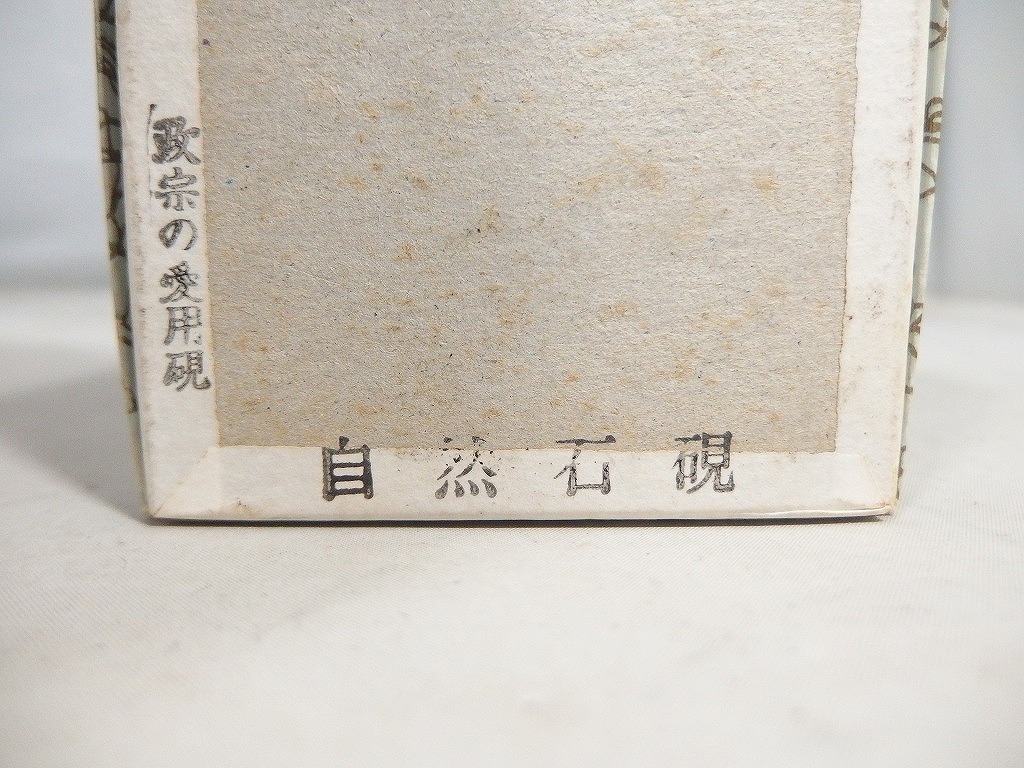 政宗の愛用硯
自然石硯